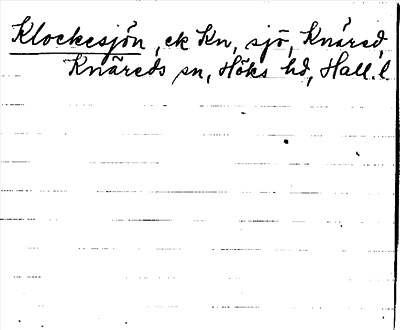 Klockesjön, ek Kn, sjö, Knäred,
Knäreds sn, Höks hd, Hall. l